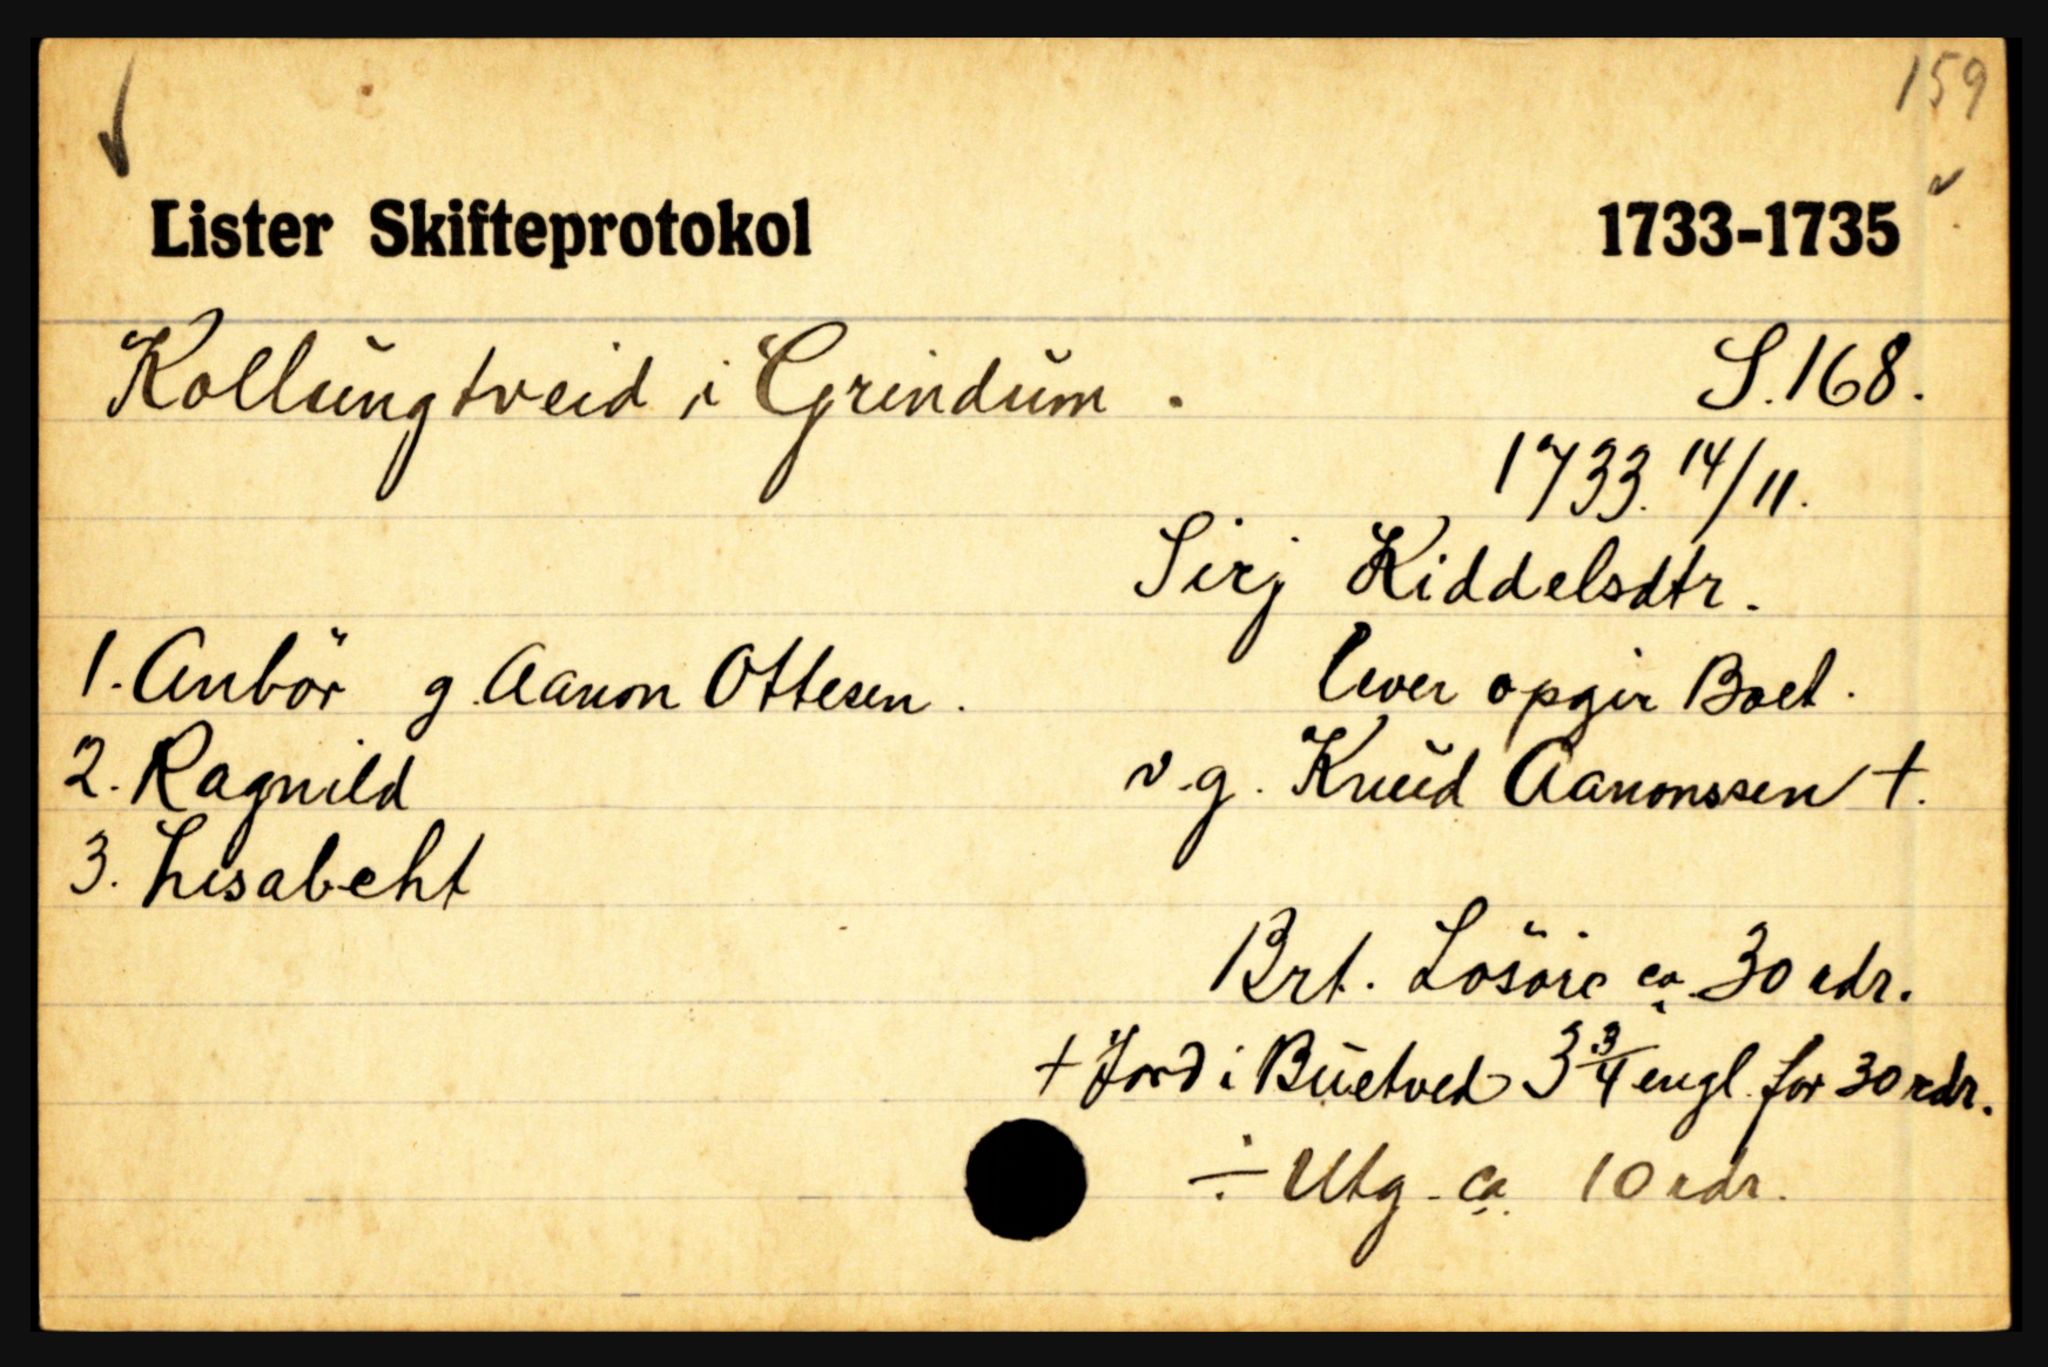 159
Lister Skifteprotokol 1733-1735
Kollungtveid i Grindum. S. 168.
1733. 14/11.
Sirj Kiddelsdtr.
1. Anbör g. Aanon Ottesen. lever opgir Boet.
2. Ragnild v. g. Knud Aanonssen †.
3. Lisabeht
Brt. Lösöre ca. 30 rdr.
+ Jord i Buetved 3 3/4 engl. for 30 rdr.
÷ Utg. ca. 10 rdr.